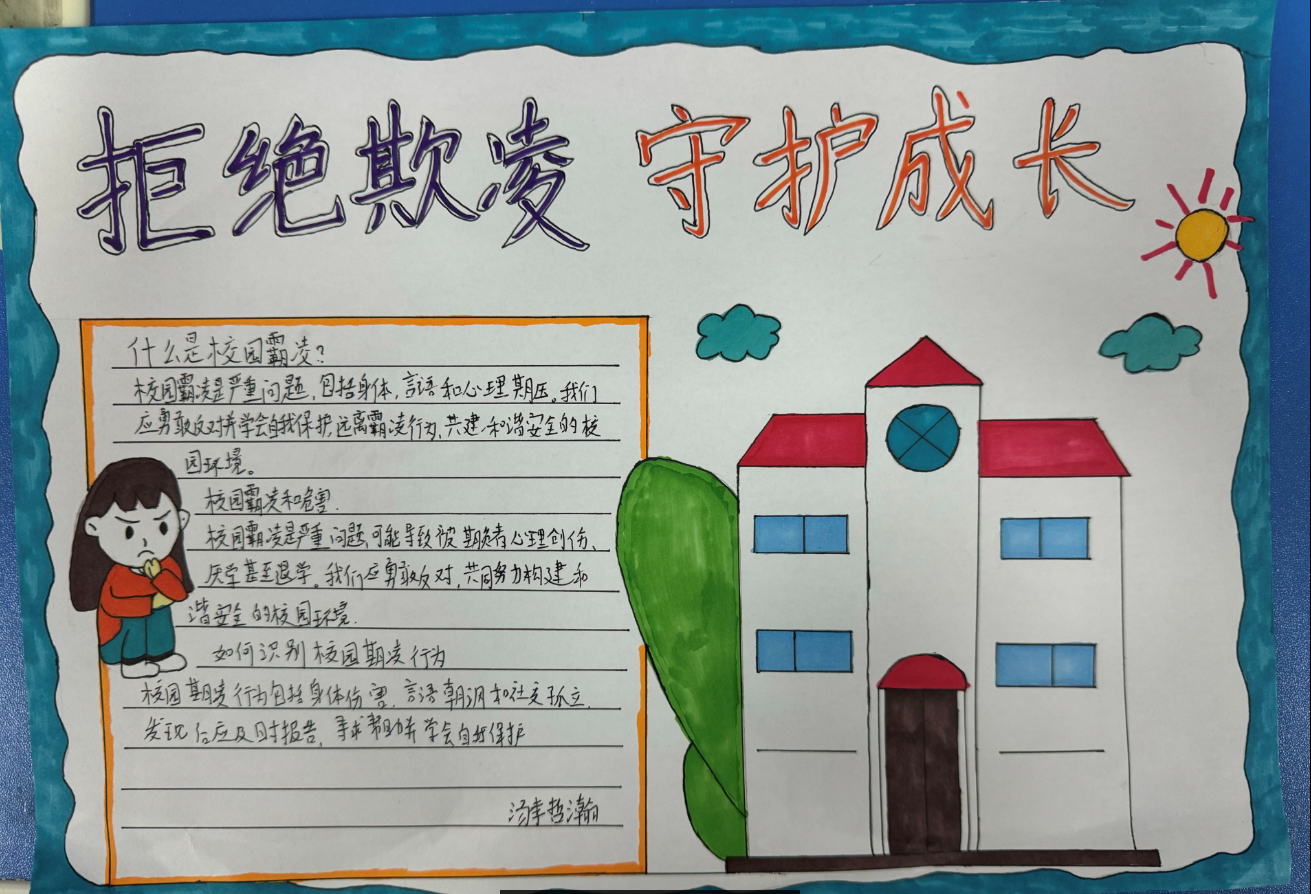 拒绝欺凌 守护成长
什么是校园霸凌?
校园霸凌是严重问题,包括身体,言语和心理期压。我们
应勇敢反对并学会自我保护,远离霸凌行为,共建和谐安全的校
园环境。
校园霸凌和危害.
校园霸凌是严重问题,可能导致被期负者心理创伤、
厌学甚至退学。我们应勇敢反对,共同努力构建和
谐安全的校园环境.
如何识别校园期凌行为
校园期凌行为包括身体伤害,言语朝讽和社交孤立,
发现后应及时报告,寻求帮助并学会自我保护
哲瀚